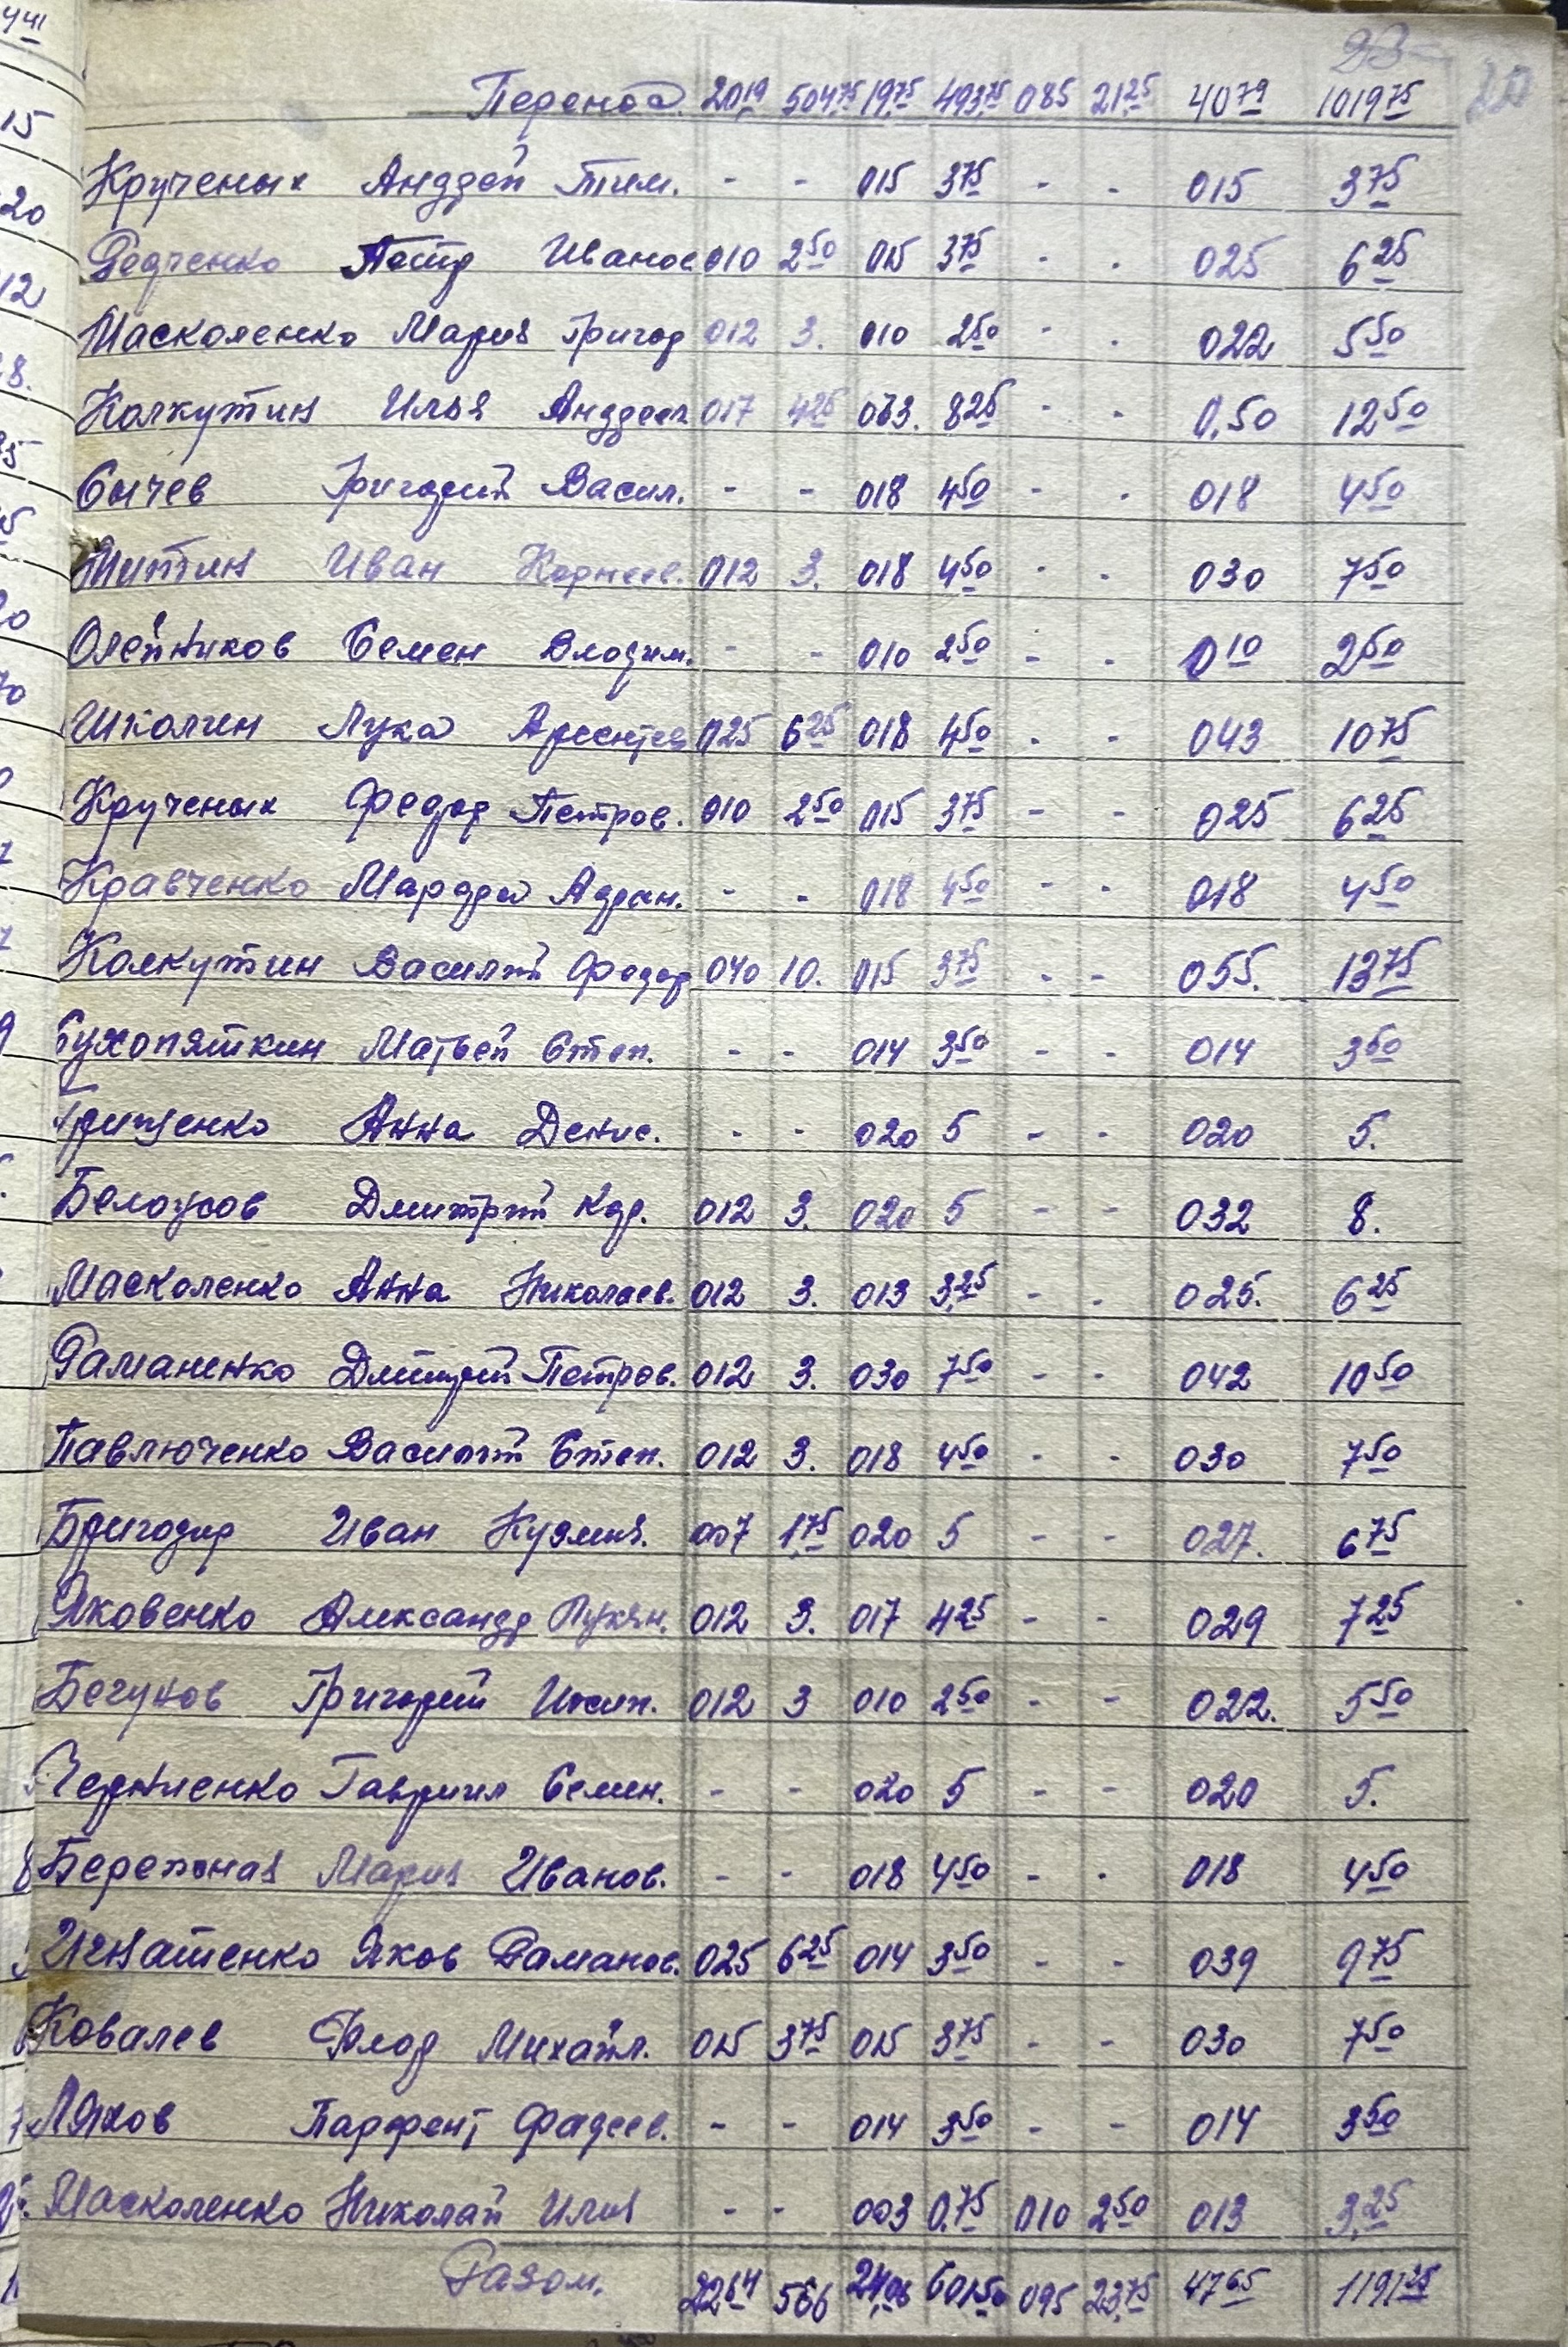 23
20
Перенос. 20,19 504,75 19,75 493,75 085 21,25 40 79 1019 75
Крученых Андрей Тим. - - 015 3 75 - - 015 3 75
Редченко Петр Иванов 010 2 50 015 3 75 - - 025 6 25
Масколенко Мария Григор 012 3. 010 2 50 - - 022 5 50
Колкутин Илья Андреев 017 4 25 033. 8 25 - - 0,50 12 50
Сычев Григорий Васил. - - 018 4 50 - - 018 4 50
Митин Иван Корнеев. 012 3. 018 4 50 - - 030 7 50
Олейников Семен Влодим. - - 010 2 50 - - 0 10 2 50
Школин Лука Арсентев 025 6 25 018 4 50 - - 043 10 75
Крученых Федор Петров. 010 2 50 015 3 75 - - 025 6 25
Кравченко Марфа Адран. - - 018 4 50 - - 018 4 50
Колкутин Василий Федор 040 10. 015 3 75 - - 055. 13 75
Сухопяткин Матвей Степ. - - 014 3 50 - - 014 3 50
Грищенко Анна Денис. - - 020 5 - - 020 5.
Белоусов Дмитрий Кар. 012 3. 020 5 - - 032 8.
Масколенко Анна Николаев. 012 3. 013 3,25 - - 025. 6 25
Раманенко Дмитрий Петров. 012 3. 030 7 50 - - 042 10 50
Павлюченко Василий Степ. 012 3. 018 4 50 - - 030 7 50
Бригодир Иван Кузмич. 007 1,75 020 5 - - 027. 6 75
Яковенко Александр Лукян. 012 3. 017 4 25 - - 029 7 25
Бегунов Григорий Иосип. 012 3 010 2 50 - - 022. 5 50
Черниенко Гавриил Семен. - - 020 5 - - 020 5.
Ережная Мария Иванов. - - 018 4 50 - - 018 4 50
Игнатенко Яков Раманов. 025 6 25 014 3 50 - - 039 9 75
Ковалев Флор Михайл. 015 3 75 015 3 75 - - 030 7 50
Ляхов Парфент Фадеев. - - 014 3 50 - - 014 3 50
Масколенко Николай Илич - - 003 0,75 010 2 50 013 3,25
Разом. 22 64 566 24,06 601 50 095 23,75 47 65 1191 25